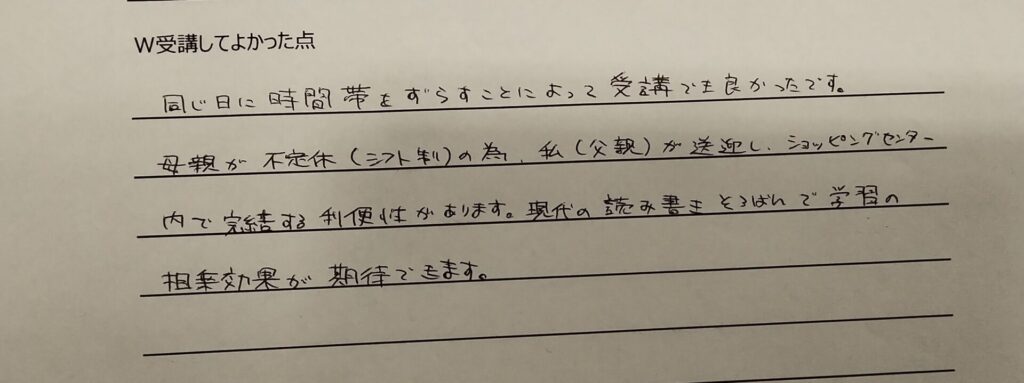 W受講してよかった点
同じ日に時間帯をずらすことによって受講でき良かったです。
母親が不定休(シフト制)の為、私(父親)が送迎し、ショッピングセンター
内で完結する利便性があります。現代の読み書きそろばんで学習の
相乗効果が期待できます。